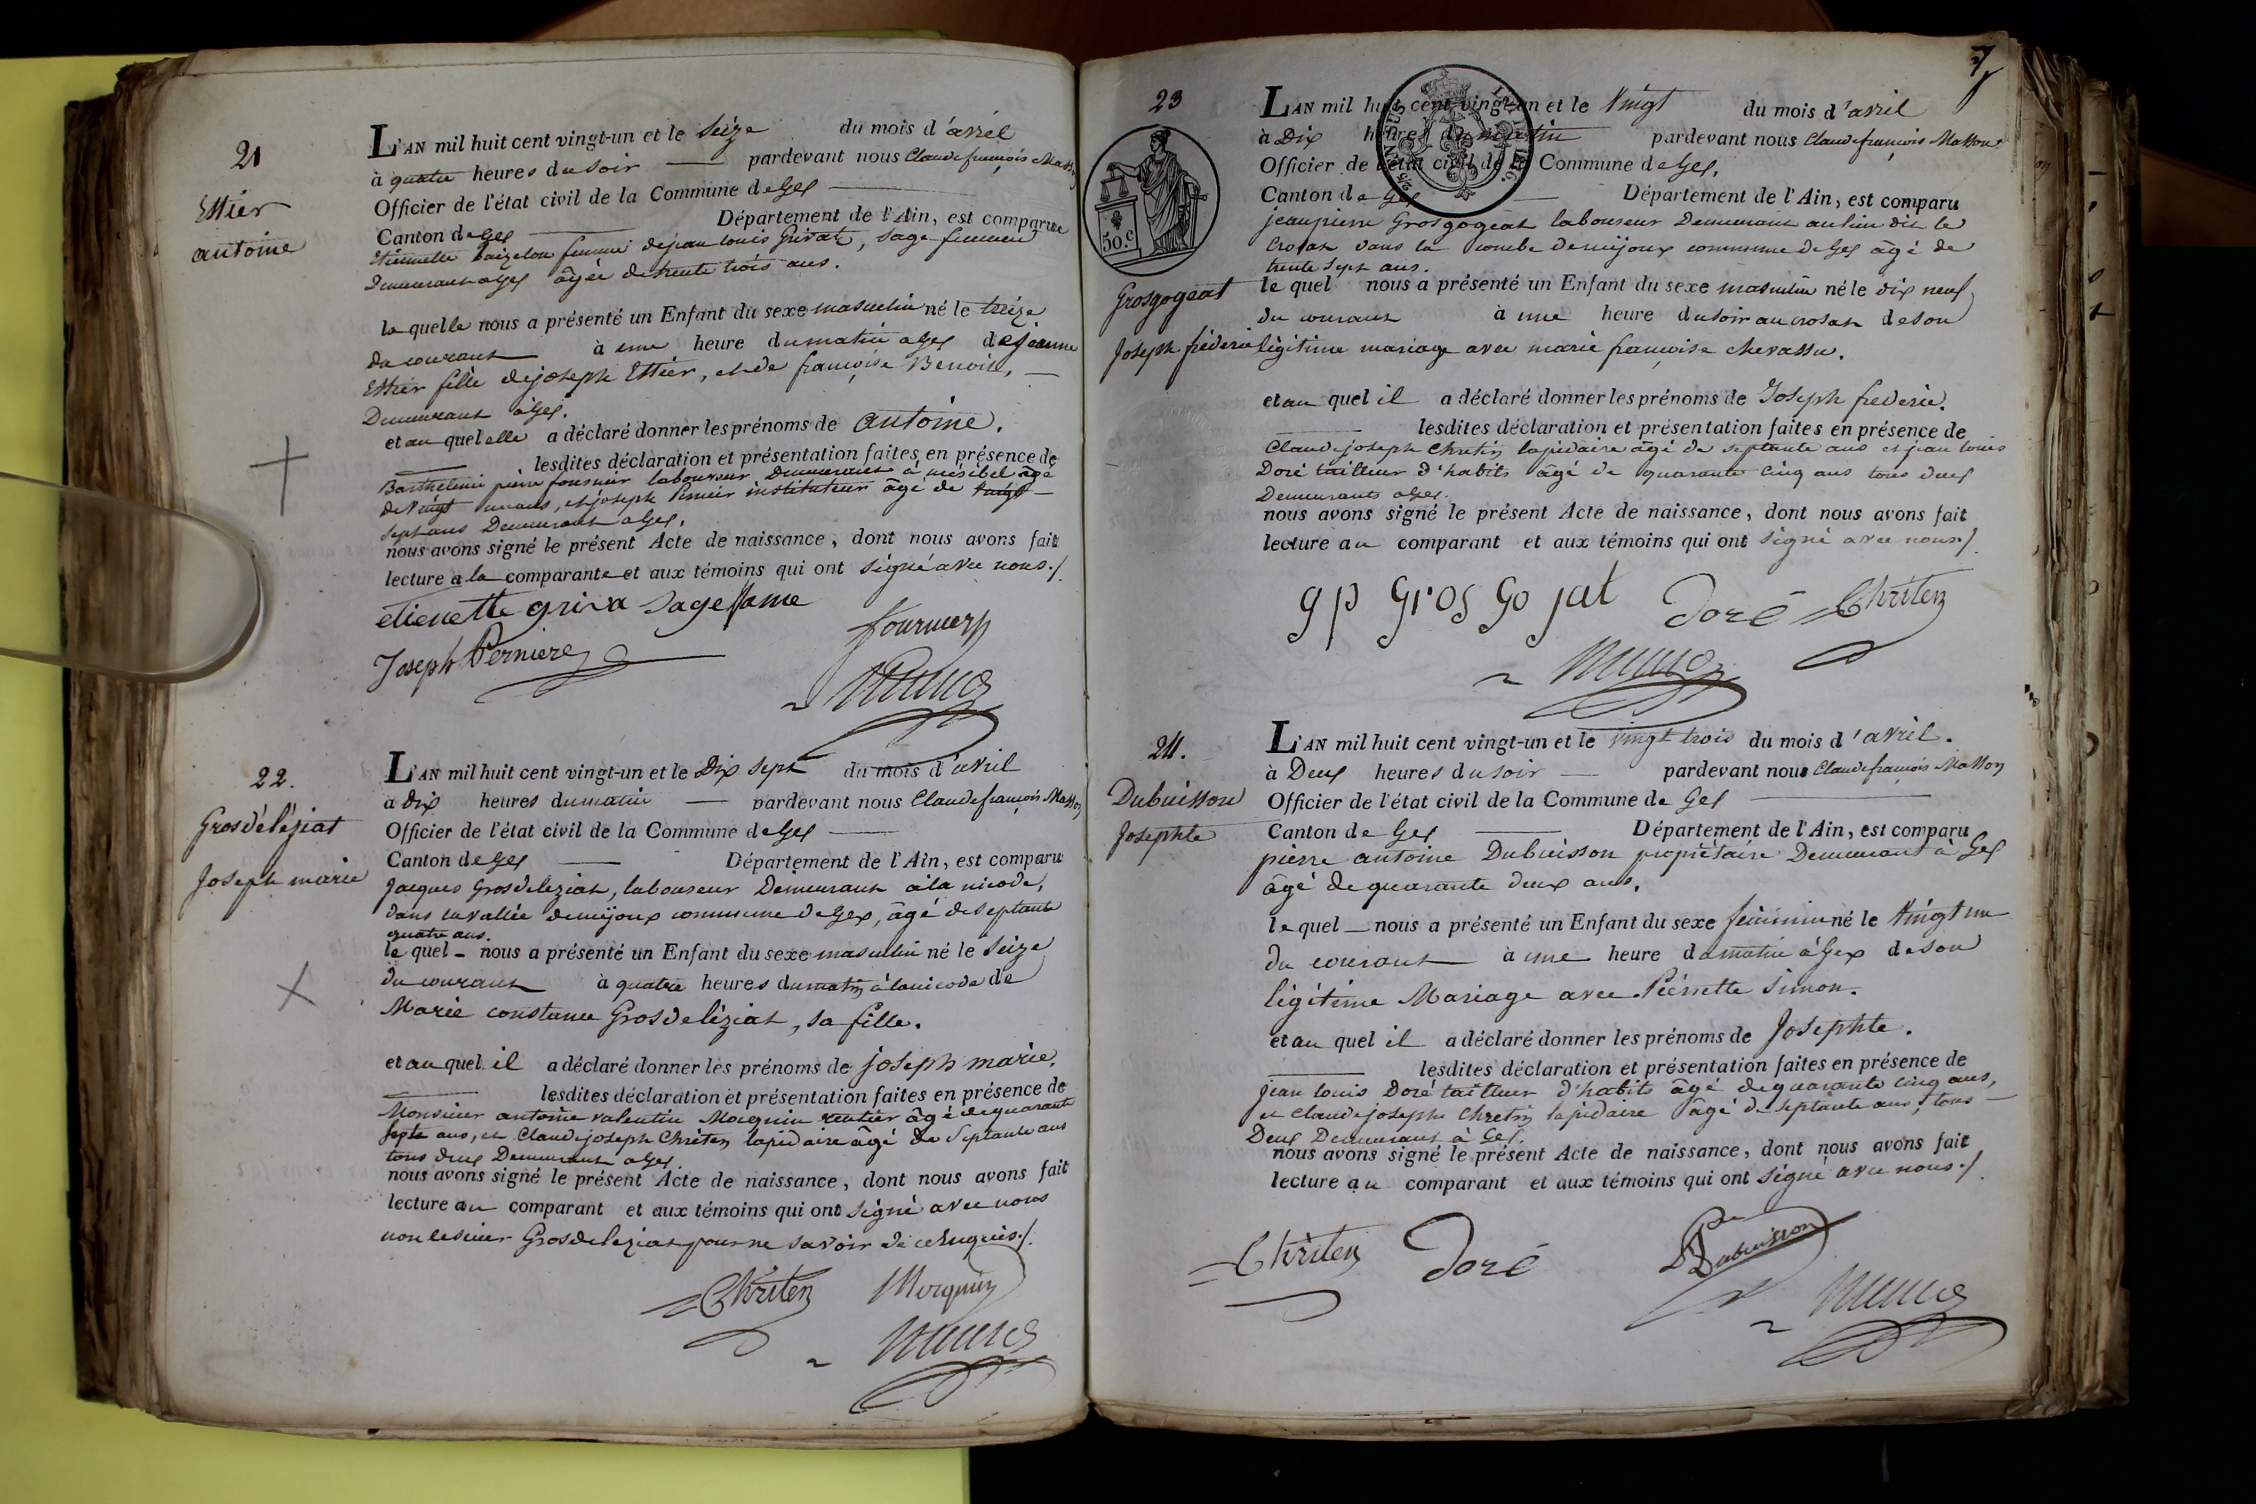 21
Ettier
antoine
L'AN mil huit cent vingt-un et le seize du mois d'avril
à quatre heures du soir pardevant nous Claude françois Masson
Officier de l'état civil de la Commune de Gex
Canton de Gex Département de l'Ain, est comparue
femme de jean louis Grivat, sage femme
Demeurant a Gex âgée de trente trois ans.
la quelle nous a présenté un Enfant du sexe masculin né le treize
du courant à une heure du matin a Gex de jeanne
Ettier fille de joseph Ettier, et de françoise Benoit,
Demeurant à Gex.
et au quel elle a déclaré donner les prénoms de antoine.
lesdites déclaration et présentation faites en présence de
Barthelemi pierre fournier laboureur, Demeurant à âgé
de Vingt un ans, et joseph Pernier instituteur âgé de vingt
sept ans Demeurant a Gex.
nous avons signé le présent Acte de naissance, dont nous avons fait
lecture a la comparante et aux témoins qui ont signé avec nous./.
etienette griva sagefame
fournier
Joseph Perniere
22.
Grosdeléziat
Joseph marie
L'AN mil huit cent vingt-un et le Dix sept du mois d'avril
à Dix heures du matin pardevant nous Claude françois Masson
Officier de l'état civil de la Commune de Gex
Canton de Gex Département de l'Ain, est comparu
Jacques Grosdeleziat, laboureur Demeurant à la nicode,
dans la vallée demijoux commune de Gex, âgé de septante
quatre ans.
le quel nous a présenté un Enfant du sexe masculin né le seize
du courant à quatre heures du matin à la nicode de
Marie constance Grosdeléziat, sa fille.
et au quel il a déclaré donner les prénoms de joseph marie.
lesdites déclaration et présentation faites en présence de
Monsieur antoine valentin Morquin rentier âgé de quarante
septe ans, et Claude joseph Chriten lapidaire âgé de Septante ans
tous deux Demeurant a Gex.
nous avons signé le présent Acte de naissance, dont nous avons fait
lecture au comparant et aux témoins qui ont signé avec nous
non le sieur Grosdeleziat pour ne savoir de ce Enquis./.
Chriten Morquin
7
23
50.c
Grosgogeat
Joseph fréderic
L'AN mil huit cent vingt-un et le Vingt du mois d'avril
à Dix heures du matin pardevant nous Claude françois Masson
Officier de l'état civil de la Commune de Gex,
Canton de Gex Département de l'Ain, est comparu
jean pierre Grosgogeat laboureur Demeurant au lieu dit le
Crosat dans la combe demijoux commune de Gex âgé de
trente sept ans.
le quel nous a présenté un Enfant du sexe masculin né le dix neuf
du courant à une heure du soir au crosat de son
légitime mariage avec marie françoise chevassu.
et au quel il a déclaré donner les prénoms de Joseph frederic.
lesdites déclaration et présentation faites en présence de
Claude joseph Chretin lapidaire âgé de septante ans et jean louis
Doré tailleur d'habits âgé de quarante cinq ans tous deux
Demeurants a Gex.
nous avons signé le présent Acte de naissance, dont nous avons fait
lecture au comparant et aux témoins qui ont signé avec nous./.
gp gros go jat Doré Chriten
24.
Dubuisson
Josephte
L'AN mil huit cent vingt-un et le vingt trois du mois d'avril.
à Deux heures du soir pardevant nous Claude françois Masson
Officier de l'état civil de la Commune de Gex
Canton de Gex Département de l'Ain, est comparu
pierre antoine Dubuisson propriétaire Demeurant à Gex
âgé de quarante deux ans.
le quel nous a présenté un Enfant du sexe féminin né le Vingt un
du courant à une heure du matin à Gex de son
légitime Mariage avec Pierrette Simon.
et au quel il a déclaré donner les prénoms de Josephte.
lesdites déclaration et présentation faites en présence de
jean louis Doré tailleur d'habits âgé de quarante cinq ans,
et Claude joseph Chretin lapidaire âgé de septante ans, tous
Deux Demeurant à Gex.
nous avons signé le présent Acte de naissance, dont nous avons fait
lecture au comparant et aux témoins qui ont signé avec nous./.
Chriten Doré Dubuisson